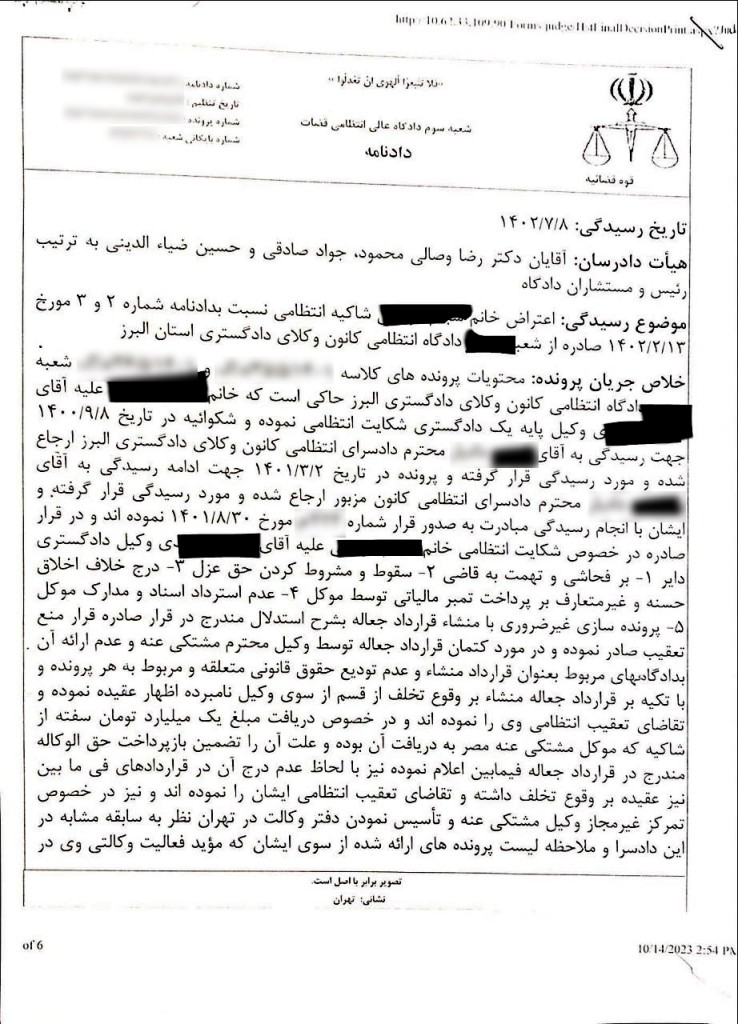 http://10.62.33.109:90/Forms/judge/HtFinalDecesionPrint.aspx?Jud
«فلا تتبعوا الهوی ان تعدلوا»
شماره دادنامه
تاریخ تنظیم :
شماره پرونده :
شماره بایگانی شعبه :
شعبه سوم دادگاه عالی انتظامی قضات
دادنامه
قوه قضائیه
تاریخ رسیدگی: ۱۴۰۲/۷/۸
هیأت دادرسان: آقایان دکتر رضا وصالی محمود، جواد صادقی و حسین ضیاء الدینی به ترتیب
رئیس و مستشاران دادگاه
موضوع رسیدگی: اعتراض خانم شاکیه انتظامی نسبت بدادنامه شماره ۲ و ۳ مورخ
۱۴۰۲/۲/۱۳ صادره از شعبه دادگاه انتظامی کانون وکلای دادگستری استان البرز
خلاص جریان پرونده: محتویات پرونده های کلاسه و شعبه
دادگاه انتظامی کانون وکلای دادگستری البرز حاکی است که خانم علیه آقای
ی وکیل پایه یک دادگستری شکایت انتظامی نموده و شکوائیه در تاریخ ۱۴۰۰/۹/۸
جهت رسیدگی به آقای محترم دادسرای انتظامی کانون وکلای دادگستری البرز ارجاع
شده و مورد رسیدگی قرار گرفته و پرونده در تاریخ ۱۴۰۱/۳/۲ جهت ادامه رسیدگی به آقای
محترم دادسرای انتظامی کانون مزبور ارجاع شده و مورد رسیدگی قرار گرفته و
ایشان با انجام رسیدگی مبادرت به صدور قرار شماره مورخ ۱۴۰۱/۸/۳۰ نموده اند و در قرار
صادره در خصوص شکایت انتظامی خانم علیه آقای دی وکیل دادگستری
دایر ۱- بر فحاشی و تهمت به قاضی ۲- سقوط و مشروط کردن حق عزل ۳- درج خلاف اخلاق
حسنه و غیرمتعارف بر پرداخت تمبر مالیاتی توسط موکل ۴- عدم استرداد اسناد و مدارک موکل
۵- پرونده سازی غیرضروری با منشاء قرارداد جعاله بشرح استدلال مندرج در قرار صادره قرار منع
تعقیب صادر نموده و در مورد کتمان قرارداد جعاله توسط وکیل محترم مشتکی عنه و عدم ارائه آن
بدادگاههای مربوط بعنوان قرارداد منشاء و عدم تودیع حقوق قانونی متعلقه و مربوط به هر پرونده و
با تکیه بر قرارداد جعاله منشاء بر وقوع تخلف از قسم از سوی وکیل نامبرده اظهار عقیده نموده و
تقاضای تعقیب انتظامی وی را نموده اند و در خصوص دریافت مبلغ یک میلیارد تومان سفته از
شاکیه که موکل مشتکی عنه مصر به دریافت آن بوده و علت آن را تضمین بازپرداخت حق الوکاله
مندرج در قرارداد جعاله فیمابین اعلام نموده نیز با لحاظ عدم درج آن در قراردادهای فی ما بین
نیز عقیده بر وقوع تخلف داشته و تقاضای تعقیب انتظامی ایشان را نموده اند و نیز در خصوص
تمرکز غیرمجاز وکیل مشتکی عنه و تأسیس نمودن دفتر وکالت در تهران نظر به سابقه مشابه در
این دادسرا و ملاحظه لیست پرونده های ارائه شده از سوی ایشان که مؤید فعالیت وکالتی وی در
تصویر برابر با اصل است.
نشانی: تهران
of 6
10/14/2023 2:54 PM